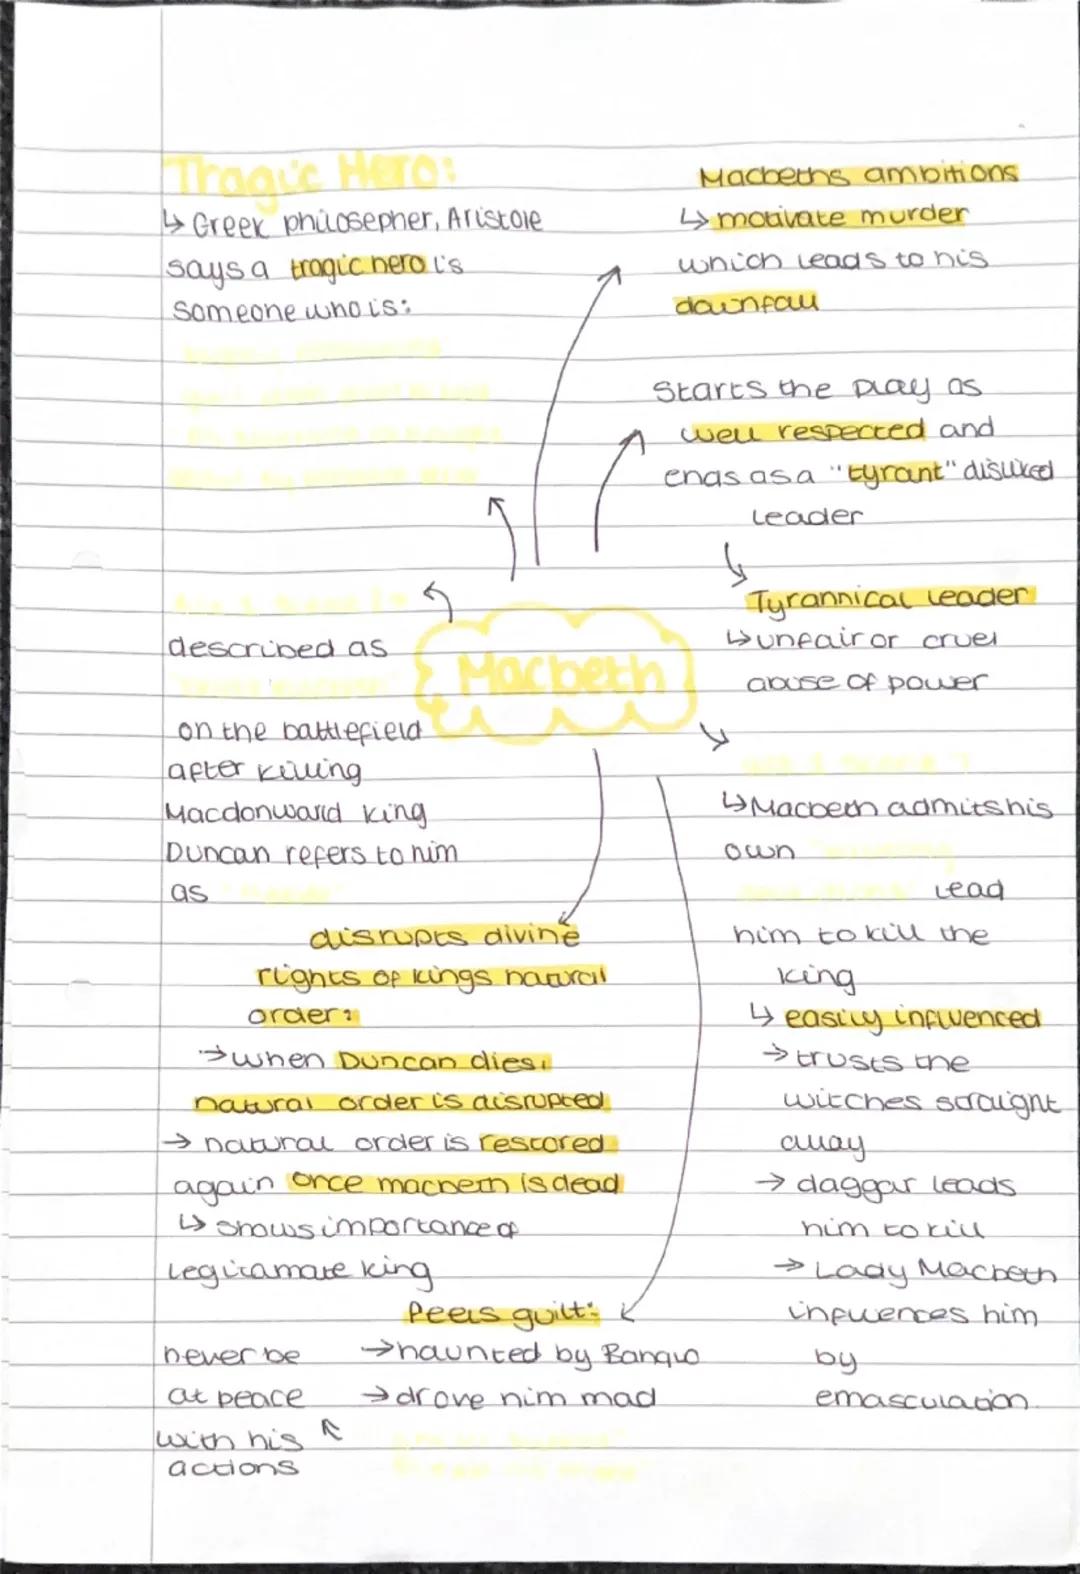 Tragic Hero:
↳ Greek philosepher, Aristole
says a tragic hero is
someone who is:
Macbeths ambitions
↳ motivate murder
which leads to his
downfall
Starts the play as
well respected and
ends as a "tyrant" disliked
leader
Tyrannical leader
↳ unfair or cruel
abuse of power
Macbeth
described as
on the battlefield
after killing
Macdonwarld king
Duncan refers to him
as
disrupts divine
rights of kings natural
order:
→ when Duncan dies,
natural order is disrupted
→ natural order is restored
again once macbeth is dead
↳ shows importance of
legitamate king
Feels guilt:
→ haunted by Banquo
→ drove him mad
never be
at peace
with his
actions
↳ Macbeth admits his
own
lead
him to kill the
king
↳ easily influenced
→ trusts the
witches straight
away
→ daggar leads
him to kill
→ Lady Macbeth
influences him
by
emasculation.